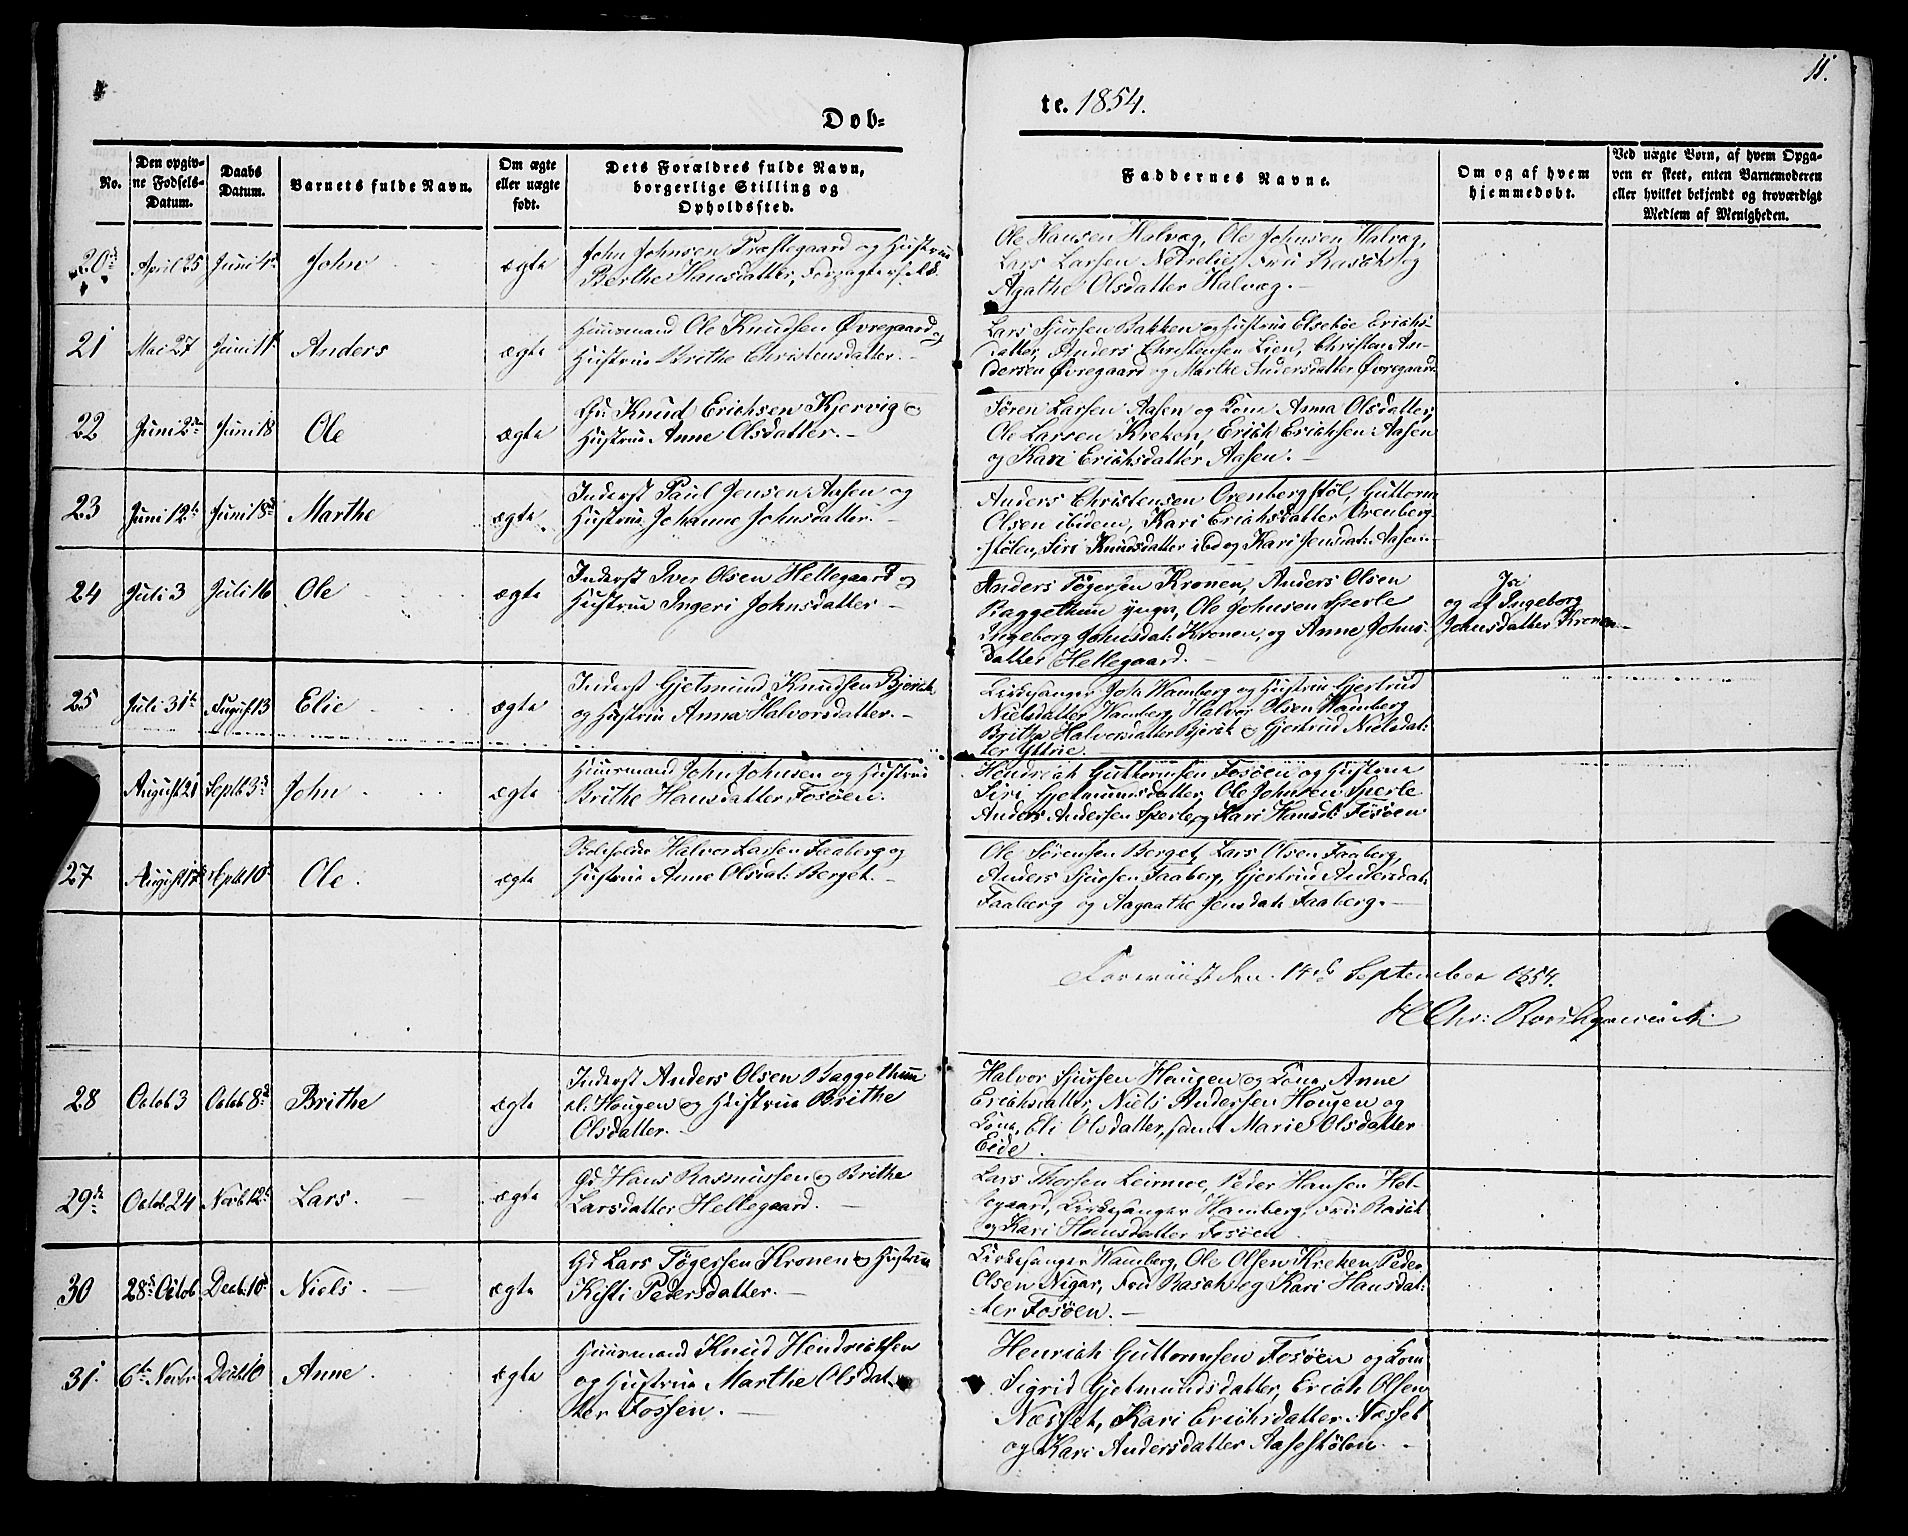 11.
Døb=
te. 1854.
No.
Den opgiv-
ne Fødsels-
Datum.
Daabs
Datum.
Barnets fulde Navn.
Om ægte
eller uægte
født.
Dets Forældres fulde Navn,
borgerlige Stilling og
Opholdssted.
Faddernes Navne.
Om og af hvem
hjemmedøbt.
Ved uægte Børn, af hvem Opga-
ven er skeet, enten Barnemoderen
eller hvilket bekjendt og troværdigt
Medlem af Menigheden.
20de
April 25
Juni 4de
John
ægte
John Johnsen Præstegaard og Hustrue
Berthe Hansdatter,
Ole Hansen Halvæg, Ole Johnsen Halvæg,
Lars Larsen Nedrelie, Fru Rasch og
Agathe Olsdatter Halvæg.
21
Mai 27
Juni 11
Anders
ægte
Huusmand Ole Knudsen Øvregaard og
Hustrue Brithe Christensdatter.
Lars Sjursen Bakken og Hustrue Elsebøe Erichs-
datter, Anders Christensen Lien, Christen An-
dersen Øvregaard og Marthe Andersdatter Øvregaard
22
Juni 2den
Juni 18
Ole
ægte
Gd Knud Erichsen Kjervig og
Hustrue Anne Olsdatter.
Søren Larsen Aasen og Kone Anna Olsdatter,
Ole Larsen Kreken, Erich Erichsen Aasen
og Kari Erichsdatter Aasen.
23
Juni 12te
Juni 18de
Marthe
ægte
Inderst Paul Jensen Aasen og
Hustrue Johanne Johnsdatter.
Anders Christensen Orenbergstøl, Guttorm
Olsen ibidem, Kari Erichsdatter Orenberg-
stølen, Siri Knudsdatter ibd og Kari Jensdat: Aasen
24
Juli 3
Juli 16
Ole
ægte
Inderst Iver Olsen Hellegaard og
Hustrue Ingeri Johnsdatter
Anders Tøgersen Kronen, Anders Olsen
Baggethun yngr, Ole Johnsen Sperle
Ingeborg Johnsdat: Kronen, og Anne Johns-
datter Hellegaard.
Ja
og af Ingeborg
Johnsdatter Kronen
25
Juli 31te
August 13
Elie
ægte
Inderst Gjetmund Knudsen Bjerik
og Hustrue Anna Halvorsdatter.
Kirkesanger Joh Wamberg og Hustrue Gjertrud
Nielsdatter Wamberg, Halvor Olsen Wamberg
Brithe Halvorsdatter Bjerik og Gjertrud Nielsdat-
ter Yttrie.
August 21
Septb 3de
John
ægte
Huusmand John Johnsen og Hustrue
Brithe Hansdatter Fosøen.
Hendrich Guttormsen Fosøen og Hustrue
Siri Gjetmunsdatter, Ole Johnsen Sperle
Anders Andersen Sperle og Kari Hansd: Fosøen
27
Septb 10de
Ole.
ægte
Skoleholder Halvor Larsen Faaberg og
Hustrue Anne Olsdat: Berget.
Ole Sørensen Berget, Lars Olsen Faaberg,
Anders Sjursen Faaberg, Gjertrud Andersdat:
Faaberg og Aagaathe Jensdat: Faaberg.
den 14de September 1854.
H Chr:
28
Octob 3
Octob 8de
Brithe
ægte
Inderst Anders Olsen Baggethun
el: Hougen og Hustrue Brithe
Olsdatter.
Halvor Sjursen Haugen og Kone Anne
Erichsdatter, Niels Andersen Hougen og
Kone, Eli Olsdatter, samt Marie Olsdatter
Eide.
29de
Octob 24
Novb 12te
Lars.
ægte
Gd Hans Rasmussen og Brithe
Larsdatter Hellegaard.
Lars Thorsen Leirmoe, Peder Hansen Hel-
legaard, Kirkesanger Wamberg, Fru Rasch
og Kari Hansdatter Fosøen
30
28de Octob
Decb. 10de
Niels.
ægte
Gd Lars Tøgersen Kronen og Hustrue
Kisti Pedersdatter.
Kirkesanger Wamberg, Ole Olsen Kreken, Peder
Olsen Nigar, Fru Rasch og Kari Hansdat-
ter Fosøen.
31
6te Novbr
Decb 10
Anne
ægte
Huusmand Knud Hendrichsen
og Hustrue Marthe Olsdat
ter Fossen.
Henrich Guttormsen Fosøen og Kone
Sigrid Gjetmundsdatter, Erich Olsen
Næsset, Kari Erichsdatter Næsset
og Kari Andersdatter Aasestølen.